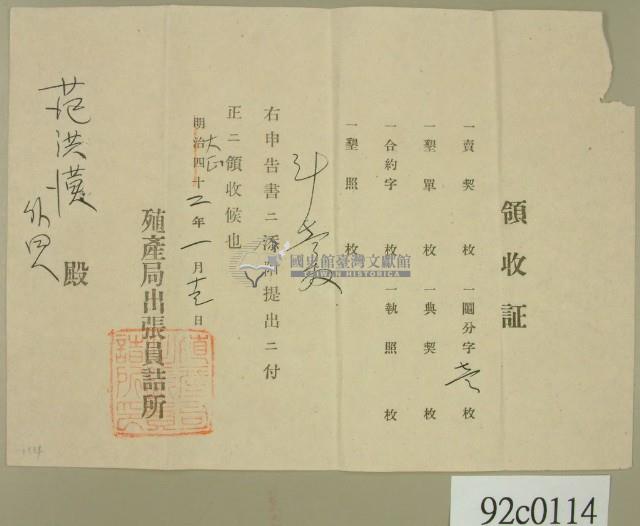 領收証
一賣契 枚 一鬮分字 壱 枚
一墾單 枚 一典契 枚
一合約字 枚 一執照 枚
一墾照 枚
計壱枚
右申告書ニ添附提出ニ付
正ニ領收候也
明治四十
大正二年一月 日
殖產局出張員詰所
范洪 外四人 殿
國史館臺灣文獻館
TAIWAN HISTORICA
92c0114